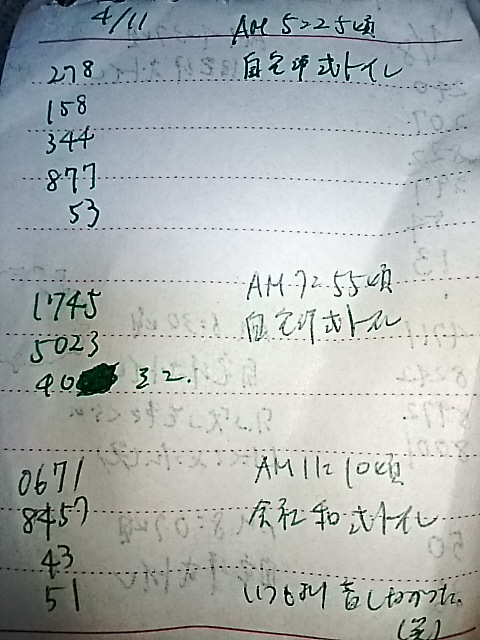 4/11 AM 5:25頃
278 自宅洋式トイレ
158
344
877
53
AM 7:55頃
1745 自宅洋式トイレ
5023
40 まで.
0671 AM 11:10頃
8457 会社和式トイレ
43
51 いつもより苦しかった。
(笑)